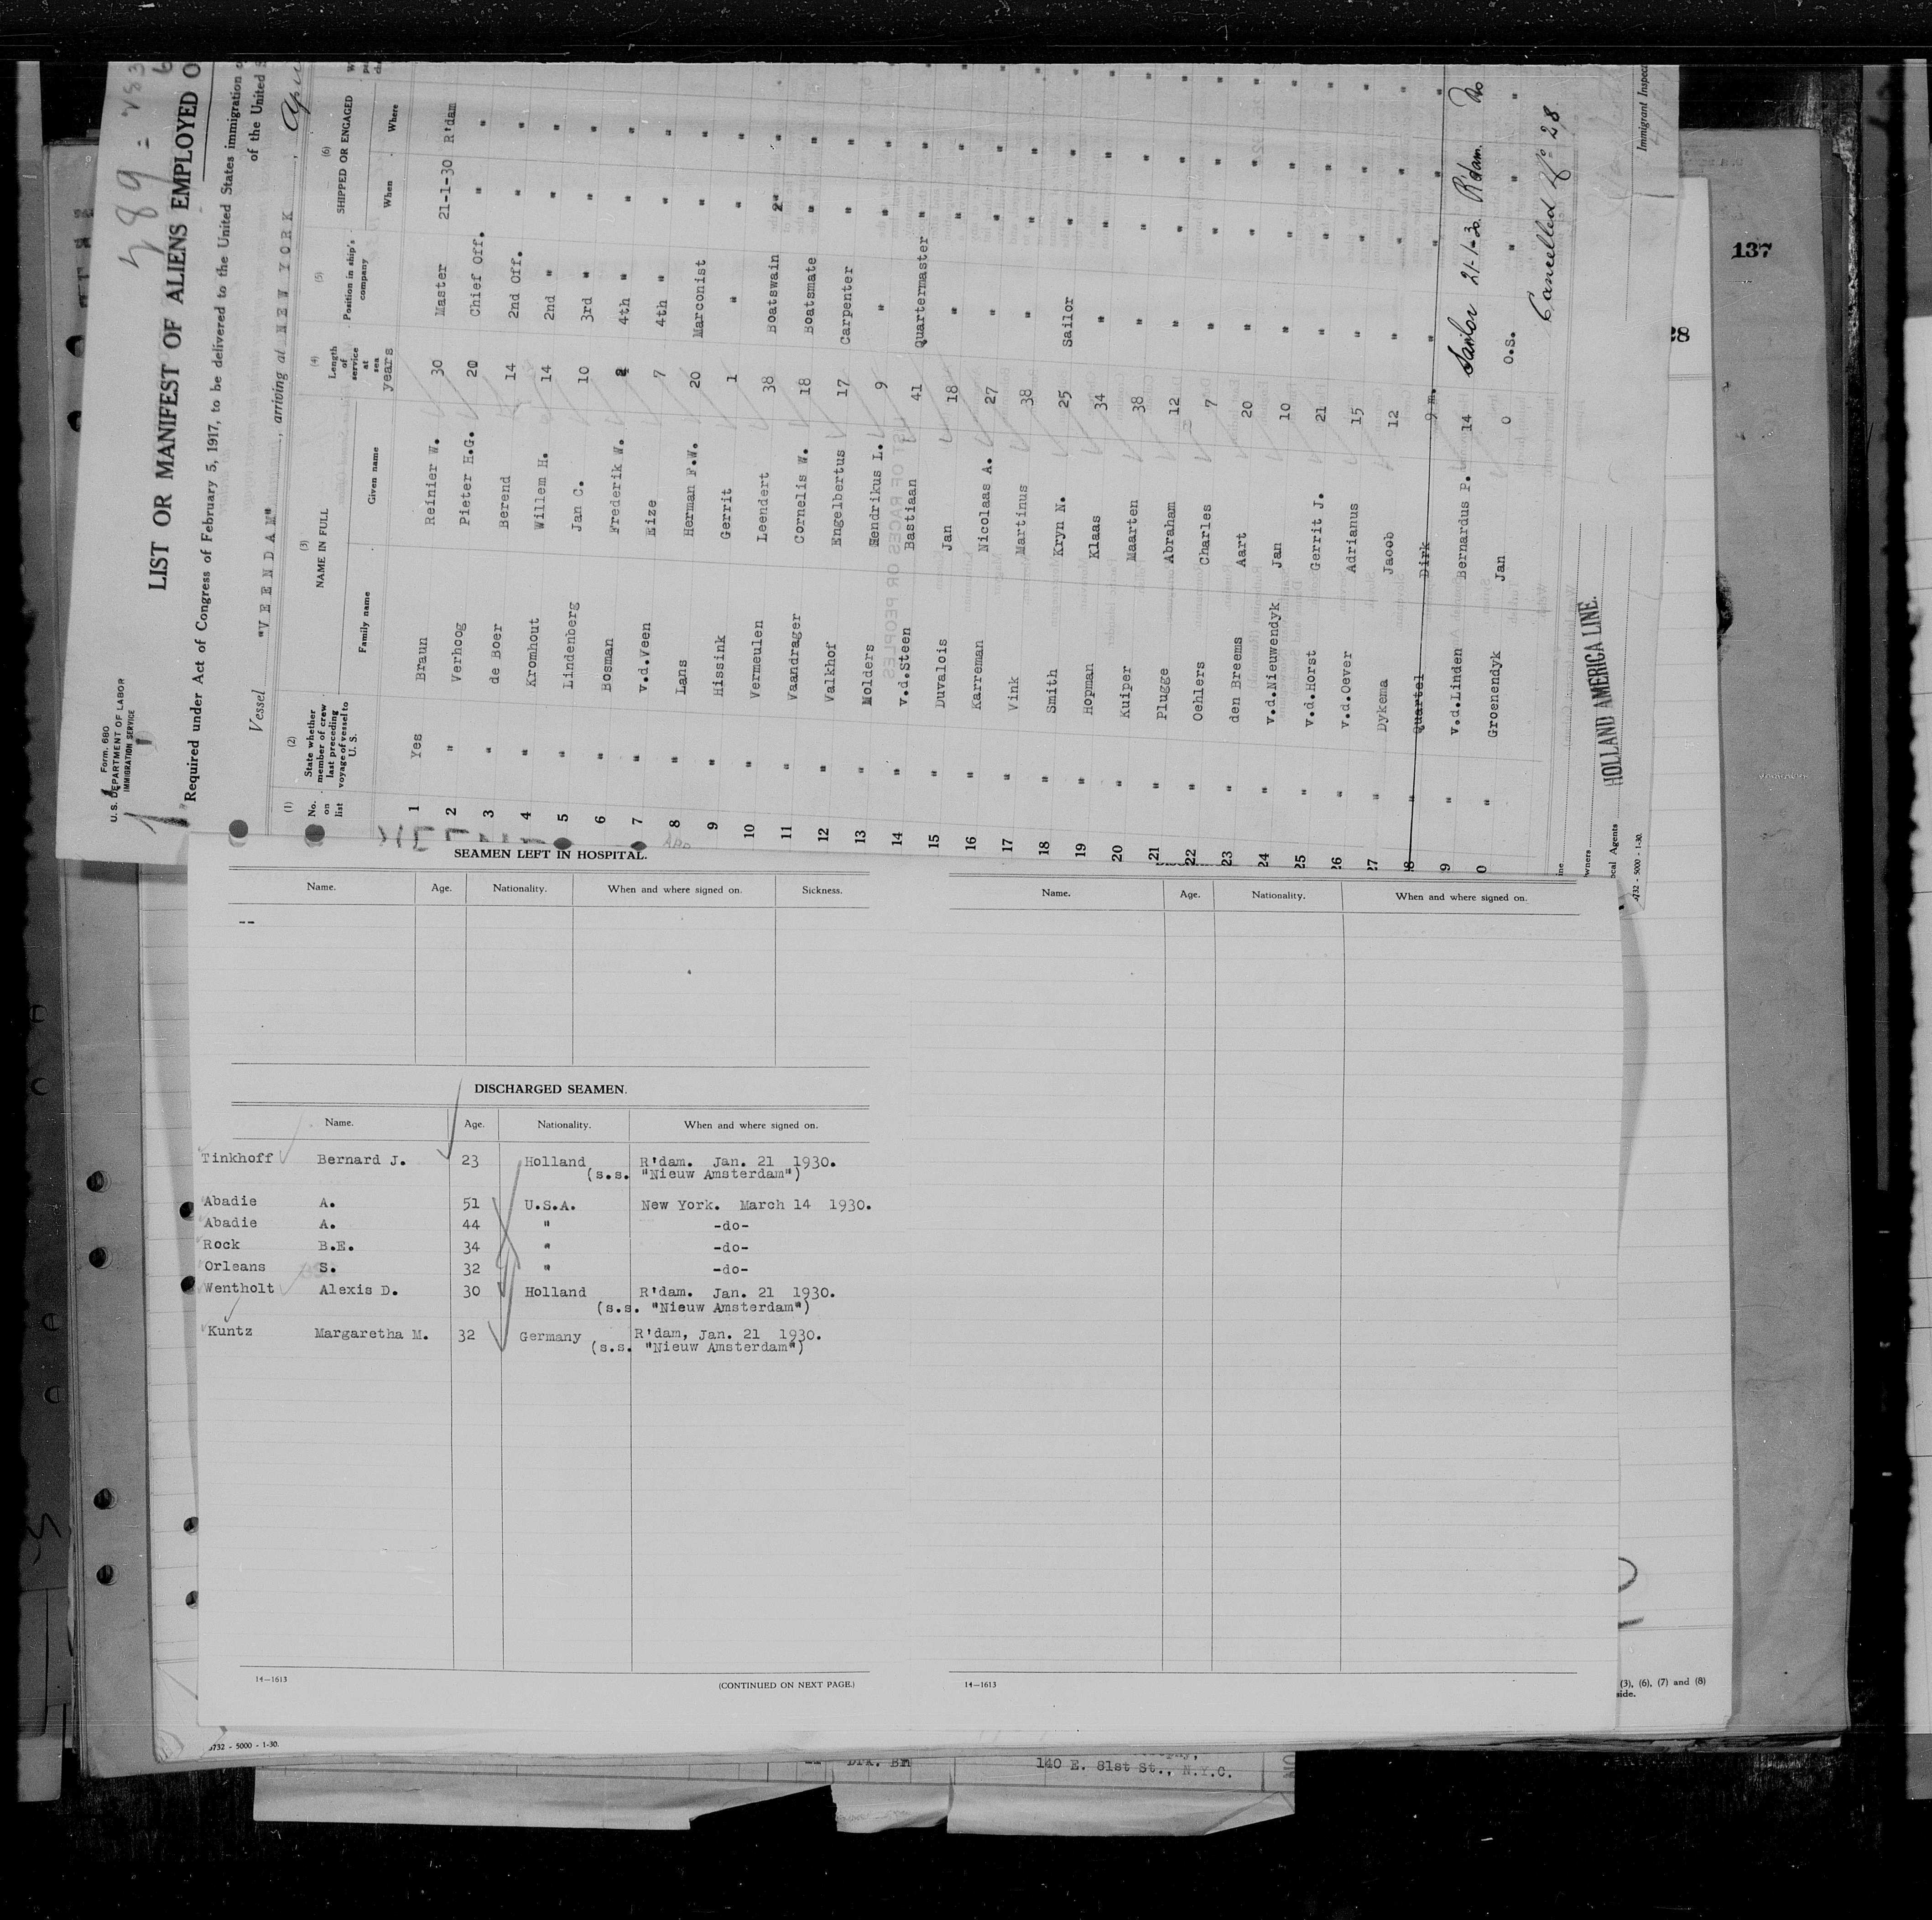 Form. 680
U. S. DEPARTMENT OF LABOR
IMMIGRATION SERVICE
489 = 483
LIST OR MANIFEST OF ALIENS EMPLOYED O
Required under Act of Congress of February 5, 1917, to be delivered to the United States immigration
of the United S
Vessel "VEENDAM", arriving at NEW YORK,
(1) (2) (3) (4) (5) (6)
No. on list
State whether member of crew last preceding voyage of vessel to U. S.
NAME IN FULL
Family name
Given name
Length of service at sea
years
Position in ship's company
SHIPPED OR ENGAGED
When
Where
1 Yes Braun Reinier W. 30 Master 21-1-30 R'dam
2 " Verhoog Pieter H.G. 20 Chief Off. " "
3 " de Boer Berend 14 2nd Off. " "
4 " Kromhout Willem H. 14 2nd " " "
5 " Lindenberg Jan C. 10 3rd " " "
6 " Bosman Frederik W. 4th " " "
7 " v.d.Veen Eize 7 4th " " "
8 " Lans Herman F.W. 20 Marconist " "
9 " Hissink Gerrit 1 " " "
10 " Vermeulen Leendert 38 Boatswain " "
11 " Vaandrager Cornelis W. 18 Boatsmate " "
12 " Valkhof Engelbertus 17 Carpenter " "
13 " Molders Hendrikus L. 9 " " "
14 " v.d.Steen Bastiaan 41 Quartermaster " "
15 " Duvalois Jan 18 " " "
16 " Karreman Nicolaas A. 27 " " "
17 " Vink Martinus 38 " " "
18 " Smith Kryn N. 25 Sailor " "
19 " Hopman Klaas 34 " " "
20 " Kuiper Maarten 38 " " "
21 " Plugge Abraham 12 " " "
22 " Oehlers Charles 7 " " "
23 " den Breems Aart 20 " " "
24 " v.d.Nieuwendyk Jan 10 " " "
25 " v.d.Horst Gerrit J. 21 " " "
26 " v.d.Oever Adrianus 15 " " "
27 " Dykema Jacob 12 " " "
8 " Quartel Dirk 9 m. " " "
9 " v.d.Linden Bernardus P. 14 Sailor 21-1-30. R'dam. No
0 " Groenendyk Jan 0 O.S. " "
Cancelled No 28
wners HOLLAND AMERICA LINE.
ocal Agents
Immigrant Inspec
732 - 5000 - 1-30.
137
28
SEAMEN LEFT IN HOSPITAL.
Name. Age. Nationality. When and where signed on. Sickness.
--
DISCHARGED SEAMEN.
Name. Age. Nationality. When and where signed on.
Tinkhoff Bernard J. 23 Holland R'dam. Jan. 21 1930.
(s.s. "Nieuw Amsterdam")
Abadie A. 51 U.S.A. New York. March 14 1930.
Abadie A. 44 " -do-
Rock B.E. 34 " -do-
Orleans S. 32 " -do-
Wentholt Alexis D. 30 Holland R'dam. Jan. 21 1930.
(s.s. "Nieuw Amsterdam")
Kuntz Margaretha M. 32 Germany R'dam, Jan. 21 1930.
(s.s. "Nieuw Amsterdam")
14—1613
(CONTINUED ON NEXT PAGE.)
Name. Age. Nationality. When and where signed on.
14—1613
(3), (6), (7) and (8)
side.
732 - 5000 - 1-30.
140 E. 81st St., N.Y.C.